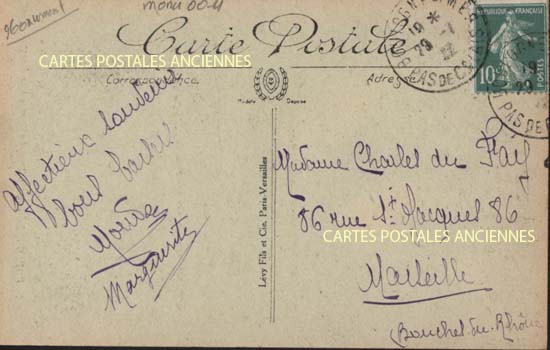 monument
monu 00-11
Carte Postale
CARTES POSTALES ANCIENNES
Correspondance.
Adresse
Modèle Déposé
REPUBLIQUE FRANÇAISE
10
19
29 - 7
22
PAS DE CALAIS
Affectueux souvenir
bons
Marguerite
Lévy Fils et Cie, Paris-Versailles
Madame Charles du Fay
86 rue St Jacques 86
CARTES POSTALES ANCIENNES
Marseille
Bouches-du-Rhône